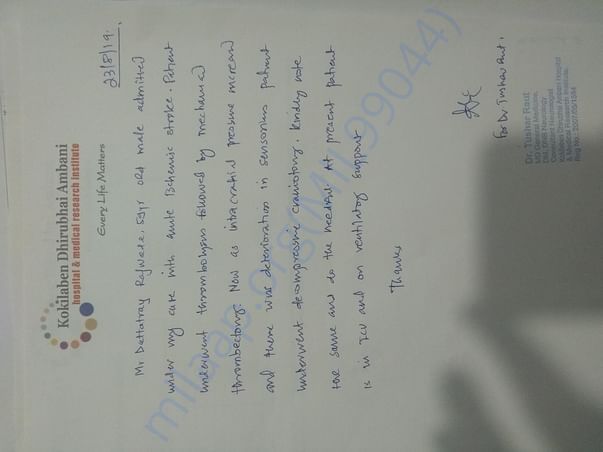 Kokilaben Dhirubhai Ambani
hospital & medical research institute
Every Life Matters
23/8/19.
Mr Dattatray Rajwade, 59yr old male admitted
under my care with acute Ischemic stroke. Patient
underwent thrombolysis followed by mechanical
thrombectomy. Now as intracranial pressure increased
and there was deterioration in sensorium patient
underwent decompressive craniotomy. Kindly note
the same and do the needful. At present patient
is in ICU and on ventilatory support
Thanks
For Dr. Tushar Raut.
Dr. Tushar Raut
MD General Medicine,
DM, DNB Neurology
Consultant Neurologist
Kokilaben Dhirubhai Ambani Hospital
& Medical Research Institute.
Reg No. 2007/05/1584
milaap.org(MIL99044)